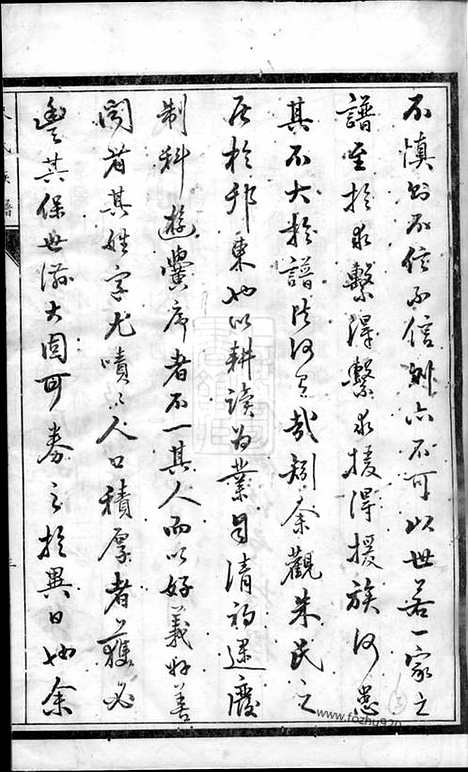 不慎則不信不信則亦不可以世若一家之
譜至於求繫得繫求援得援族何患
其不大於譜法何有哉矧余觀朱氏之
居於邦東也以耕讀為業自清初迄慶
制科遊黌序者不一其人而以好義好善
聞者其姓字尤嘖々人口積厚者獲必
豐其保世滋大固可券之於異日也余
www.fozhu920.com